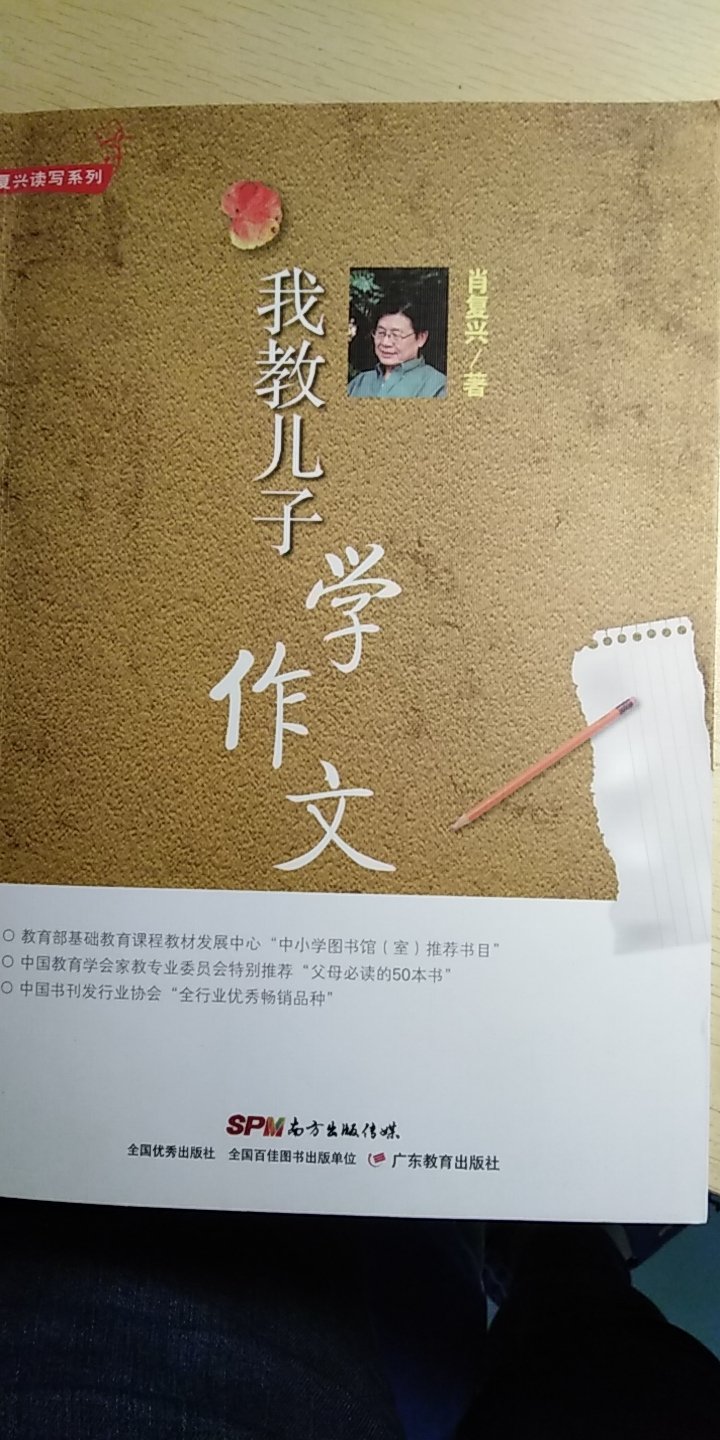 复兴读写系列
肖复兴/著
我教儿子
学作文
○ 教育部基础教育课程教材发展中心“中小学图书馆（室）推荐书目”
○ 中国教育学会家教专业委员会特别推荐“父母必读的50本书”
○ 中国书刊发行业协会“全行业优秀畅销品种”
SPM 南方出版传媒
全国优秀出版社 全国百佳图书出版单位 广东教育出版社